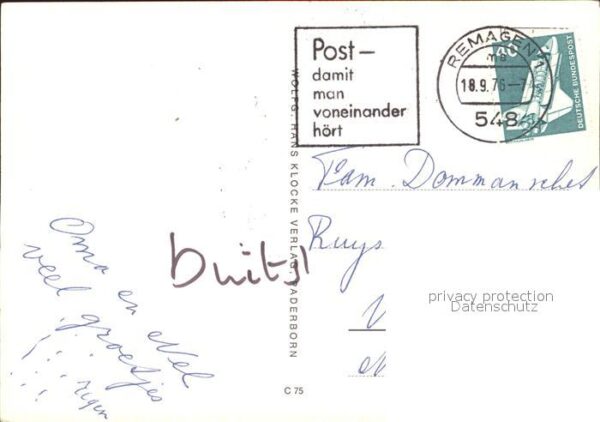 Post –
damit
man
voneinander
hört
REMAGEN 1
mb
18.9.76
548
40
DEUTSCHE BUNDESPOST
WOLFG. HANS KLOCKE VERLAG, PADERBORN
Fam. Dommansches
Ruys
V
N
privacy protection
Datenschutz
Oma en Nel
veel groetjes
Duitsl
C 75